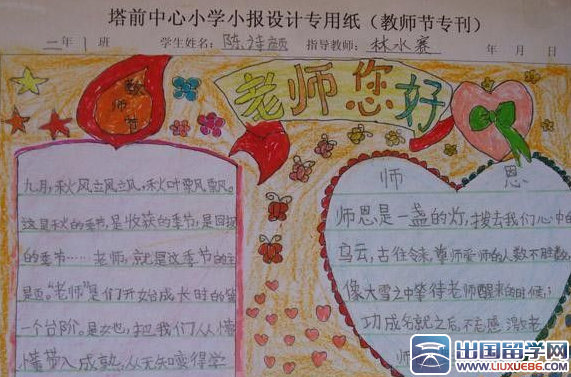 塔前中心小学小报设计专用纸（教师节专刊）
二年1班 学生姓名：陈诗颜 指导教师：林水赛 年 月 日
教师节
老师您好
九月，秋风立风立风，秋叶飘风飘风。
这是秋的季节，是收获的季节，是回报
的季节……老师，就是这季节的主
是。"老师"是们开台成长时的第
一个台阶。是女也，把我们从人懵
懂带入成熟，从无知变得学
师 恩
师恩是一盏的灯，拨去我们心中的
乌云，古往今来，尊师爱师的人数不胜数，
像大雪之中等待老师醒来的时候，
功成名就之后，不忘感激老
师
出国留学网
WWW.LIUXUE86.COM